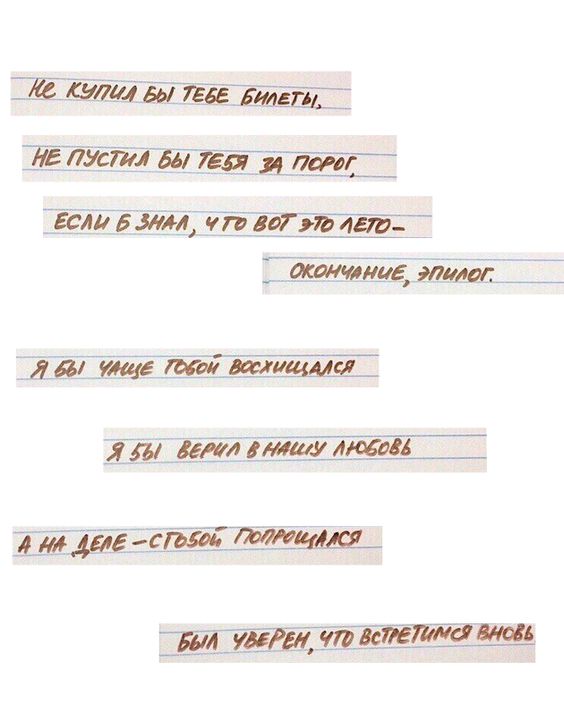 Не купил бы тебе билеты,
не пустил бы тебя за порог,
если б знал, что вот это лето–
окончание, эпилог.
Я бы чаще тобой восхищался
Я бы верил в нашу любовь
А на деле – с тобой попрощался
Был уверен, что встретимся вновь